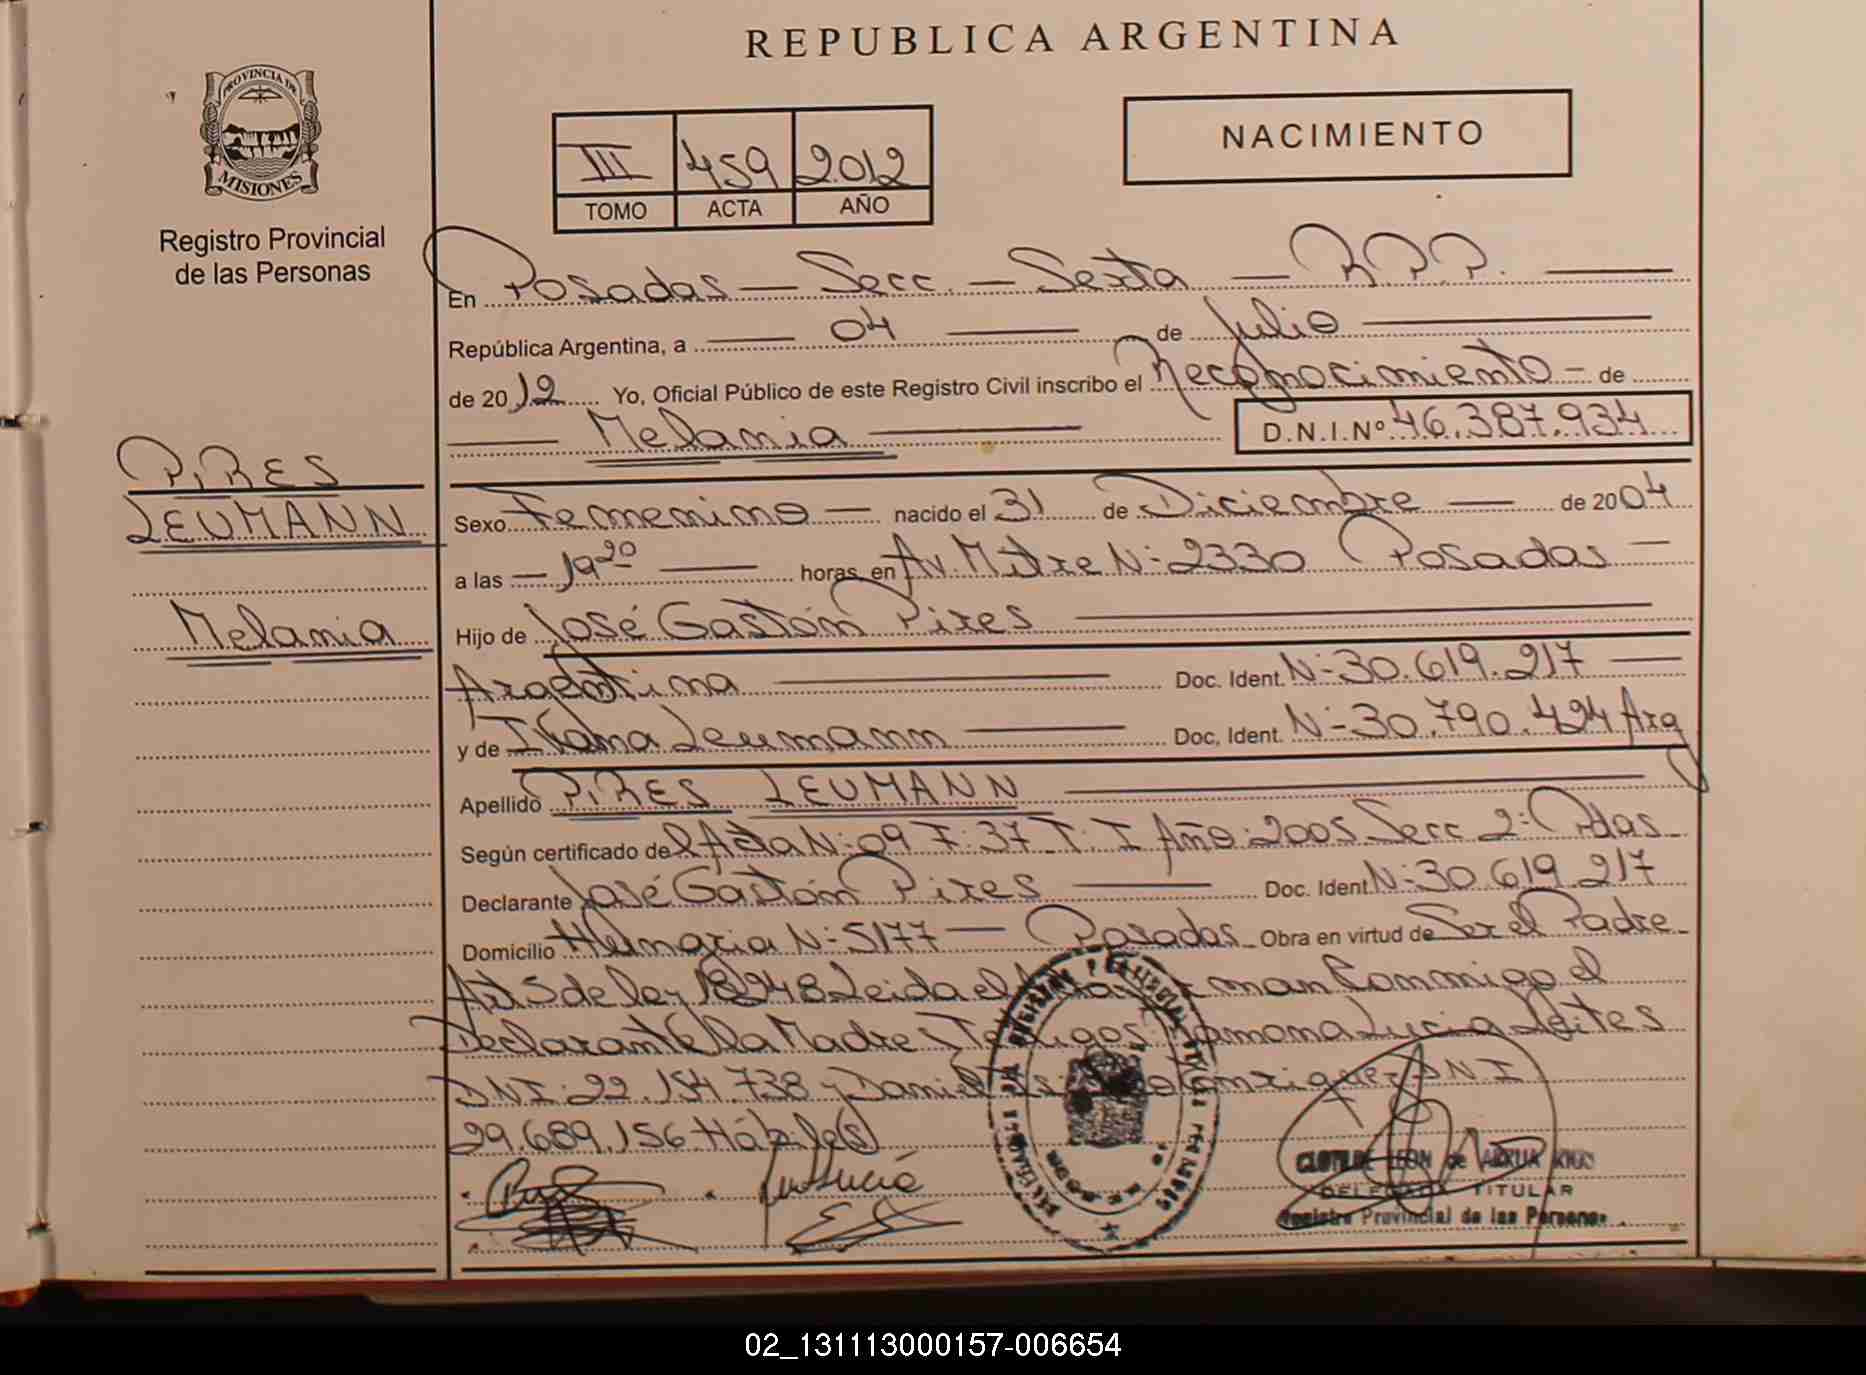 REPUBLICA ARGENTINA
PROVINCIA DE
MISIONES
Registro Provincial
de las Personas
III 459 2012
TOMO ACTA AÑO
NACIMIENTO
En Posadas — Secc. — Sexta — R.P.P.
República Argentina, a 04 de Julio
de 2012 Yo, Oficial Público de este Registro Civil inscribo el Reconocimiento - de
Melania D.N.I.Nº 46.387.934
PiRES
LEUMANN
Melania
Sexo Femenino — nacido el 31 de Diciembre — de 2004
a las — 19 20 — horas, en Av. Mitre N: 2330 Posadas —
Hijo de José Gastón Pires
Argentina Doc. Ident. N: 30.619.217
y de Ivana Leumann Doc. Ident. N: 30.790.424 Arg
Apellido PiRES LEUMANN
Según certificado del Acta N: 09 F: 37 T: I Año: 2005 Secc 2: Pdas
Declarante José Gastón Pires Doc. Ident N: 30.619.217
Domicilio N: 5177 — Posadas Obra en virtud de Ser el Padre
Art 5 de ley 18248 Leida el man Commigo el
Declarante la Madre Testigos Ramona Lucia Leites
DNI: 22.154.738 y Daniel DNI
29.689.156 Hábile(s)
CLOTILDE LEON de
DELEGADA TITULAR
Registro Provincial de las Personas
02_131113000157-006654